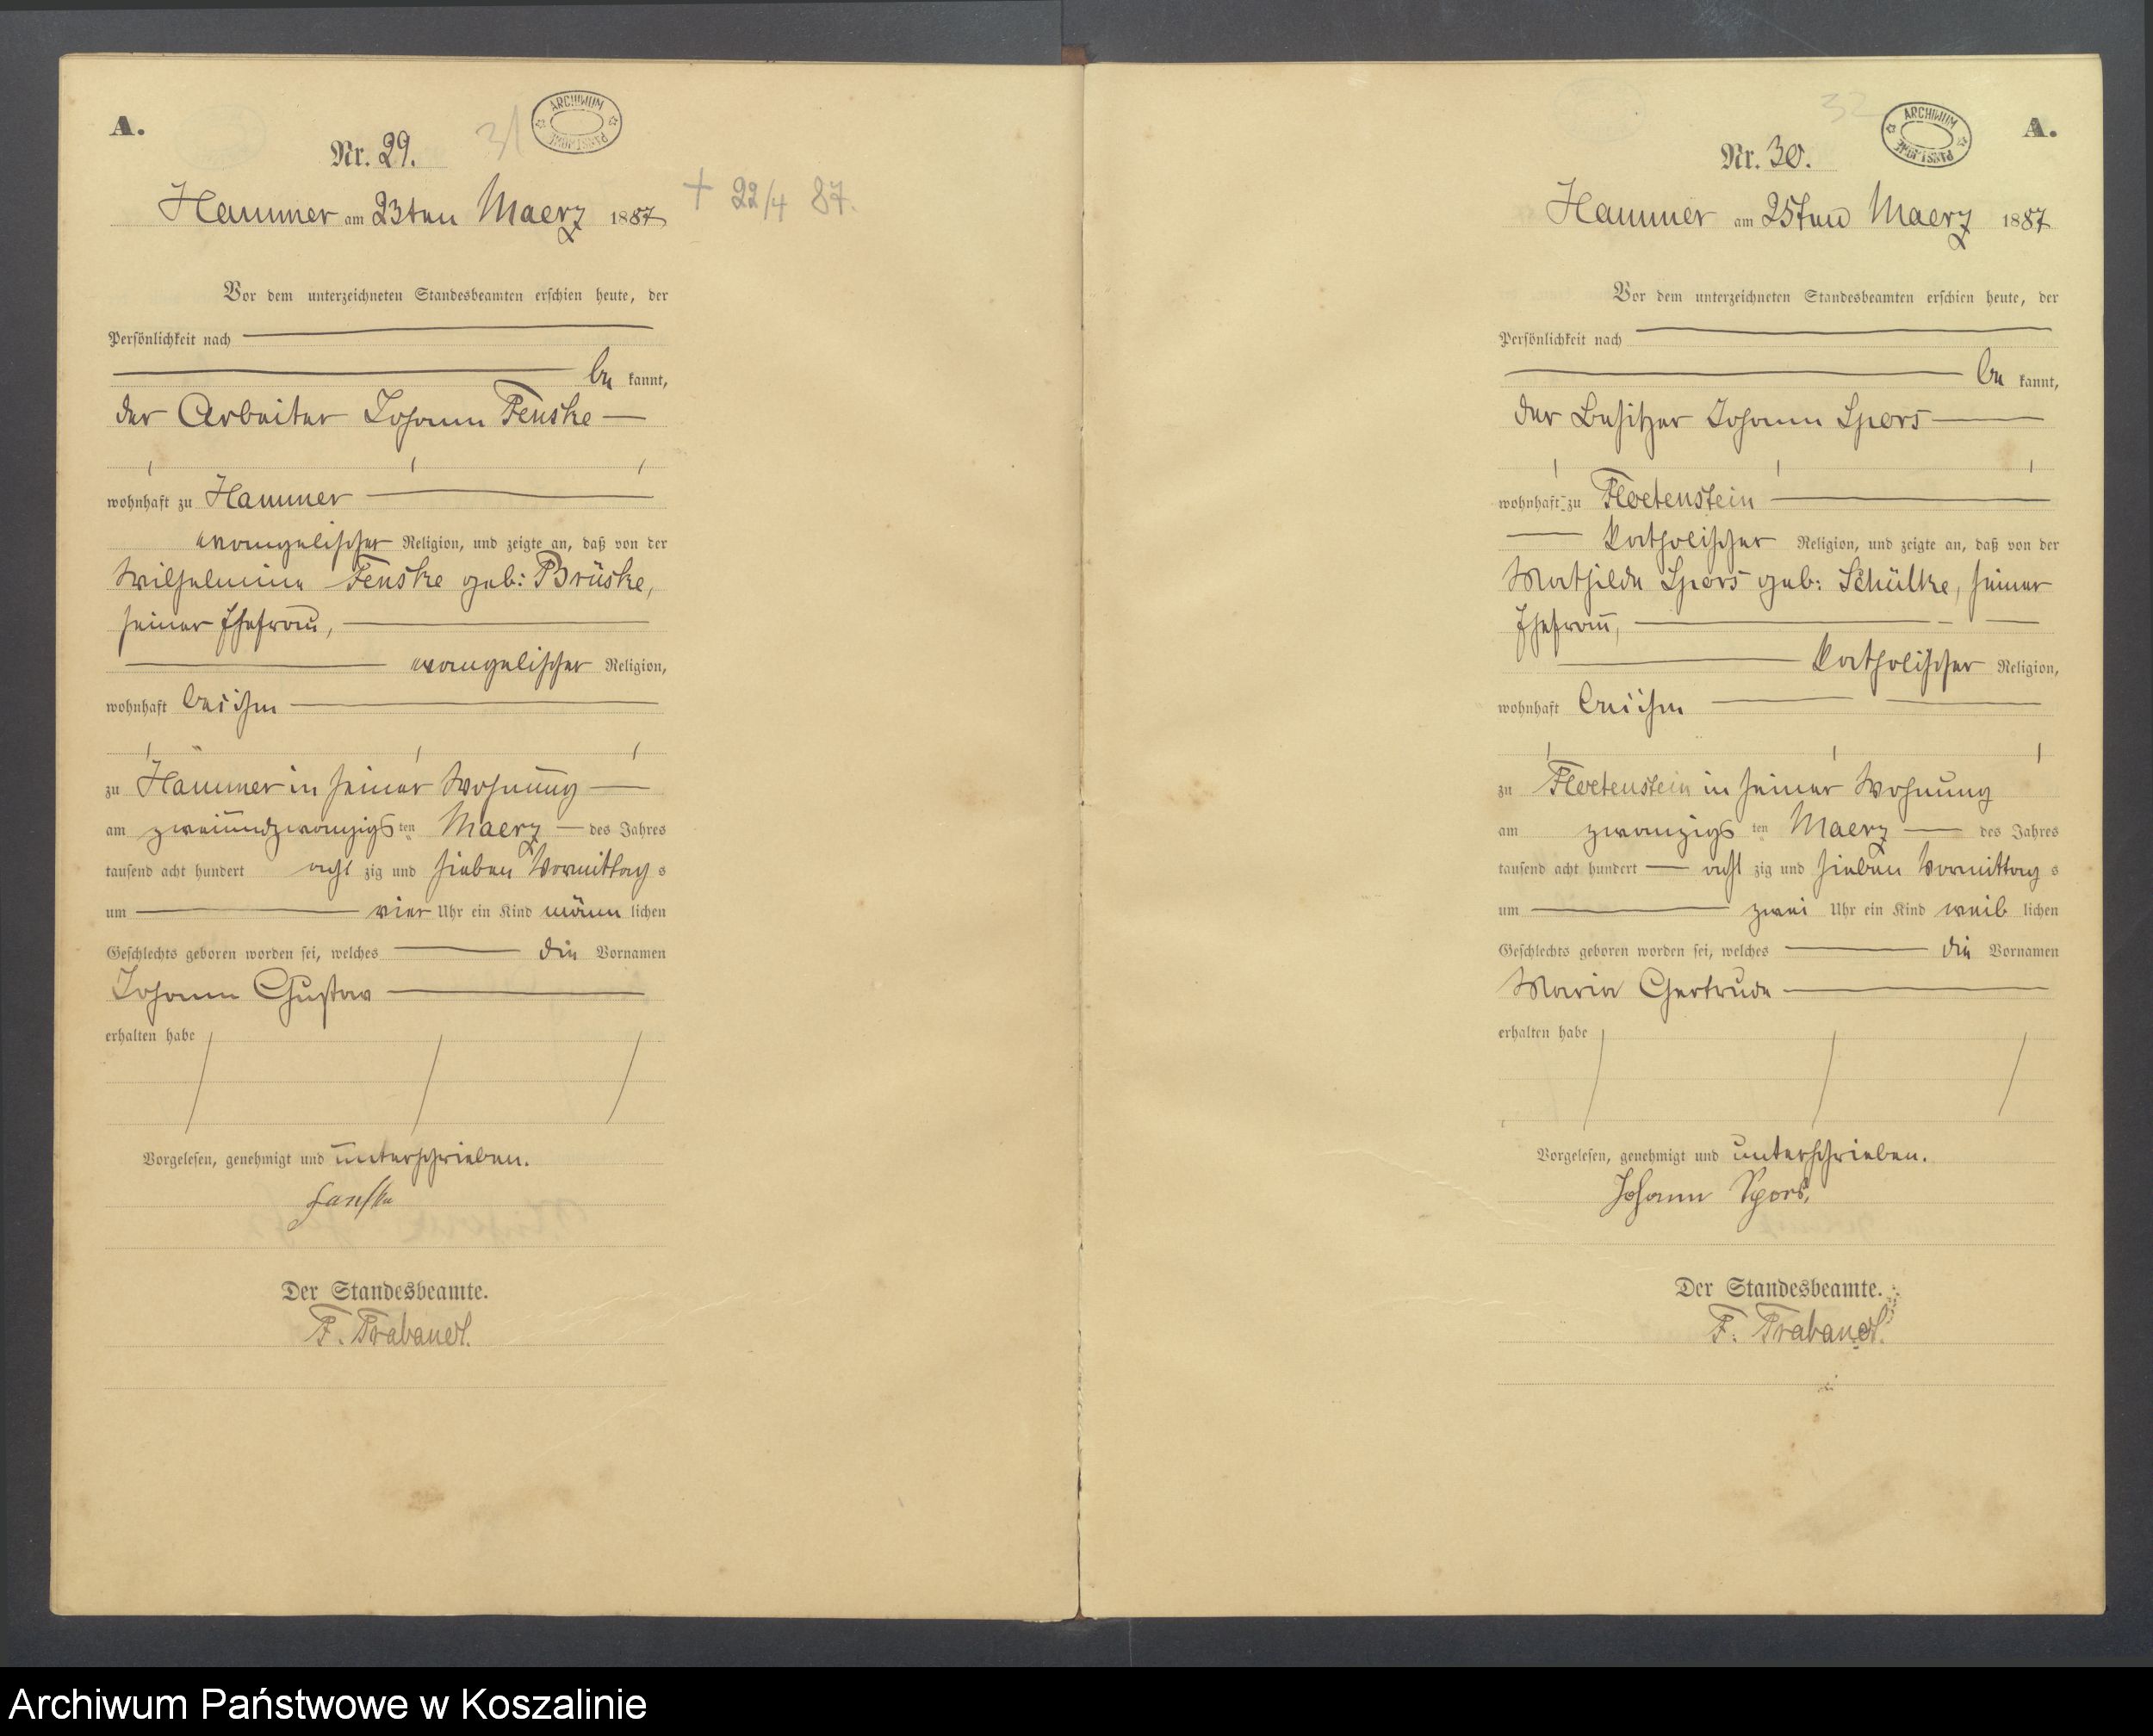 A.
Nr. 29.
31
ARCHIWUM PAŃSTWOWE
Hammer am 23ten Maerz 1887
+ 22/4 87.
Vor dem unterzeichneten Standesbeamten erschien heute, der
Persönlichkeit nach
be kannt,
der Arbeiter Johann Fenske
wohnhaft zu Hammer
evangelischer Religion, und zeigte an, daß von der
Wilhelmine Fenske geb: Brüske,
seiner Ehefrau,
evangelischer Religion,
wohnhaft bei ihm
zu Hammer in seiner Wohnung
am zweiundzwanzigs ten Maerz des Jahres
tausend acht hundert acht zig und sieben Vormittag s
um vier Uhr ein Kind männ lichen
Geschlechts geboren worden sei, welches die Vornamen
Johann Gustav
erhalten habe
Vorgelesen, genehmigt und unterschrieben.
Fenske
Der Standesbeamte.
F. Trabandt.
A.
Nr. 30.
32
ARCHIWUM PAŃSTWOWE
Hammer am 25ten Maerz 1887
Vor dem unterzeichneten Standesbeamten erschien heute, der
Persönlichkeit nach
be kannt,
der Besitzer Johann Spors
wohnhaft zu Floetenstein
katholischer Religion, und zeigte an, daß von der
Mathilde Spors geb: Schülke, seiner
Ehefrau,
katholischer Religion,
wohnhaft bei ihm
zu Floetenstein in seiner Wohnung
am zwanzigs ten Maerz des Jahres
tausend acht hundert acht zig und sieben Vormittag s
um zwei Uhr ein Kind weib lichen
Geschlechts geboren worden sei, welches die Vornamen
Maria Gertrude
erhalten habe
Vorgelesen, genehmigt und unterschrieben.
Johann Spors.
Der Standesbeamte.
F. Trabandt.
Archiwum Państwowe w Koszalinie